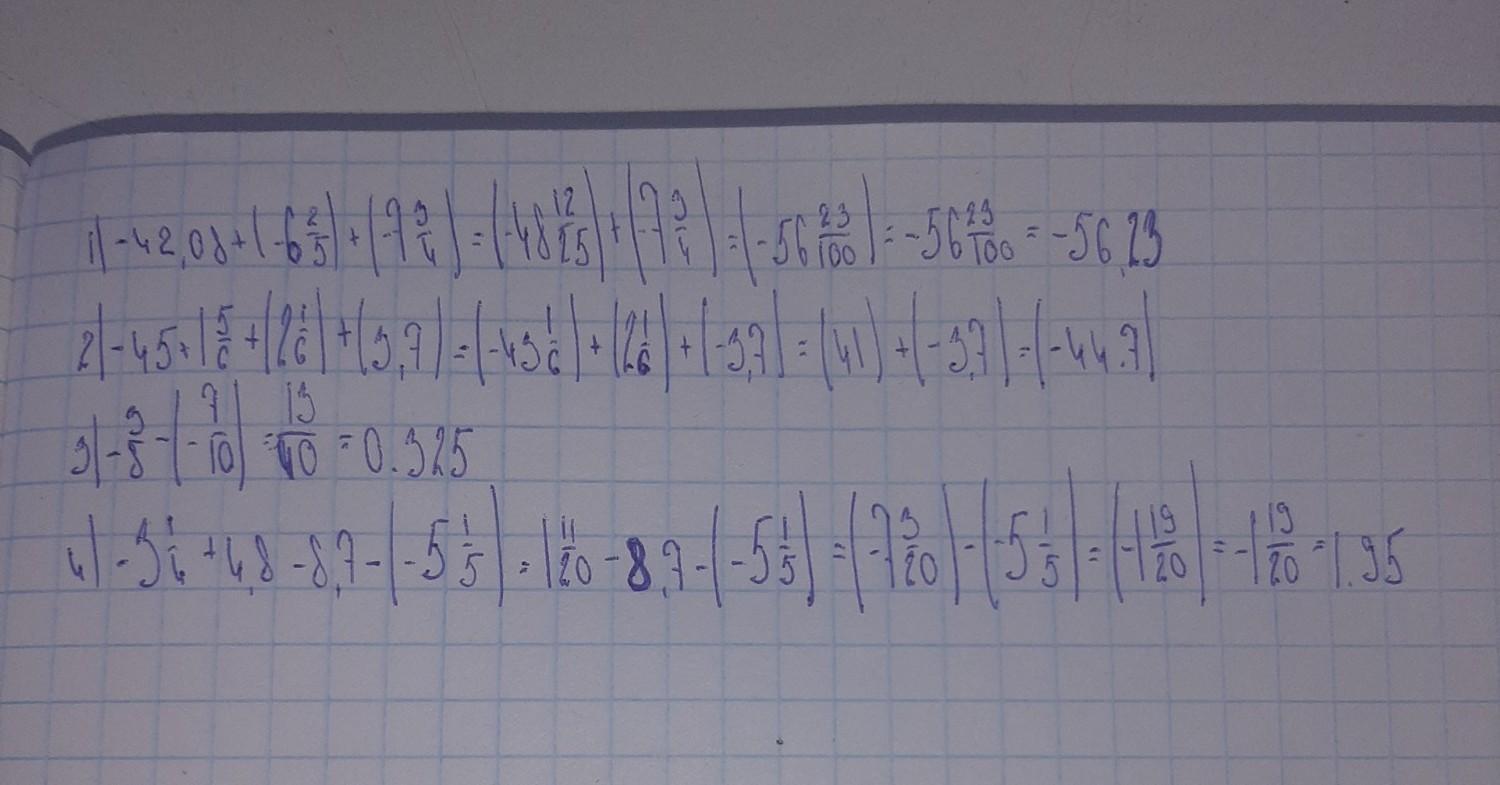 1) -42,08+(-6 2/5)+(-7 3/4)=(-48 12/25)+(-7 3/4)=(-56 23/100)=-56 23/100=-56,23
2) -45+1 5/6+(2 1/6)+(3,7)=(-43 1/6)+(2 1/6)+(-3,7)=(41)+(-3,7)=(-44.7)
3) -3/8-(-7/10)=13/40=0.325
4) -3 1/4+4,8-8,7-(-5 1/5)=1 11/20-8,7-(-5 1/5)=(-7 3/20)-(-5 1/5)=(-1 19/20)=-1 19/20=1.95